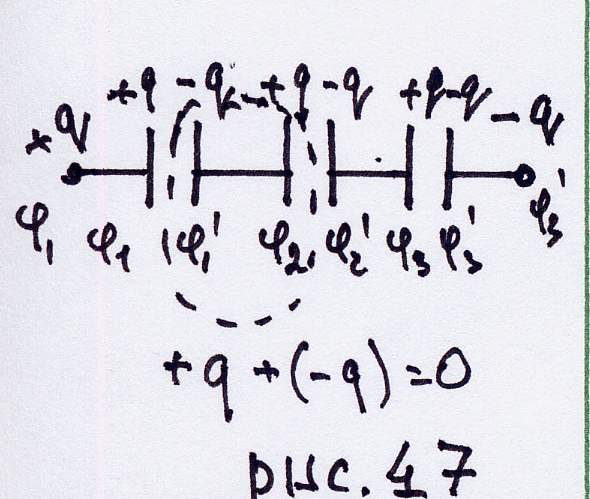 +q -q +q -q +q -q
+q -q
φ₁ φ₁ φ₁' φ₂ φ₂' φ₃ φ₃' φ₃'
+q + (-q) = 0
рис. 47